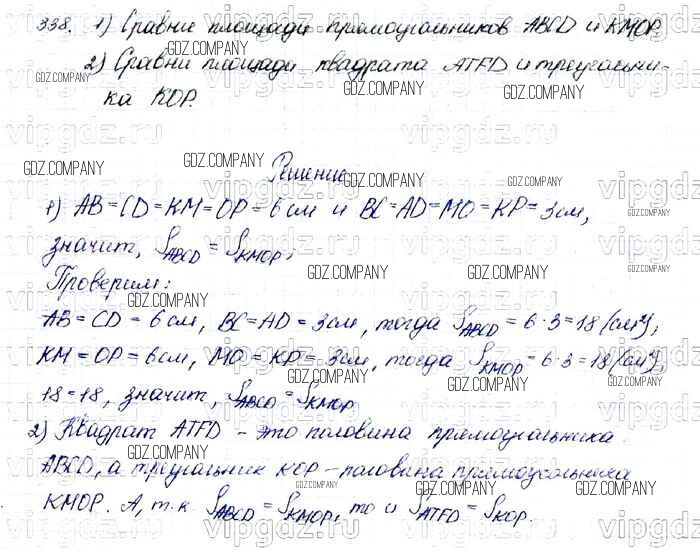 338. 1) Сравни площади прямоугольников ABCD и KMOP.
2) Сравни площади квадрата ATFD и треугольни-
ка KOP.
Решение
1) AB = CD = KM = OP = 6 см и BC = AD = MO = KP = 3 см,
значит, S ABCD = S KMOP,
Проверим:
AB = CD = 6 см, BC = AD = 3 см, тогда S ABCD = 6 · 3 = 18 (см²),
KM = OP = 6 см, MO = KP = 3 см, тогда S KMOP = 6 · 3 = 18 (см²),
18 = 18, значит, S ABCD = S KMOP
2) Квадрат ATFD – это половина прямоугольника
ABCD, а треугольник KOP – половина прямоугольника
KMOP. А, т.к. S ABCD = S KMOP, то и S ATFD = S KOP.
GDZ.COMPANY
vipgdz.ru